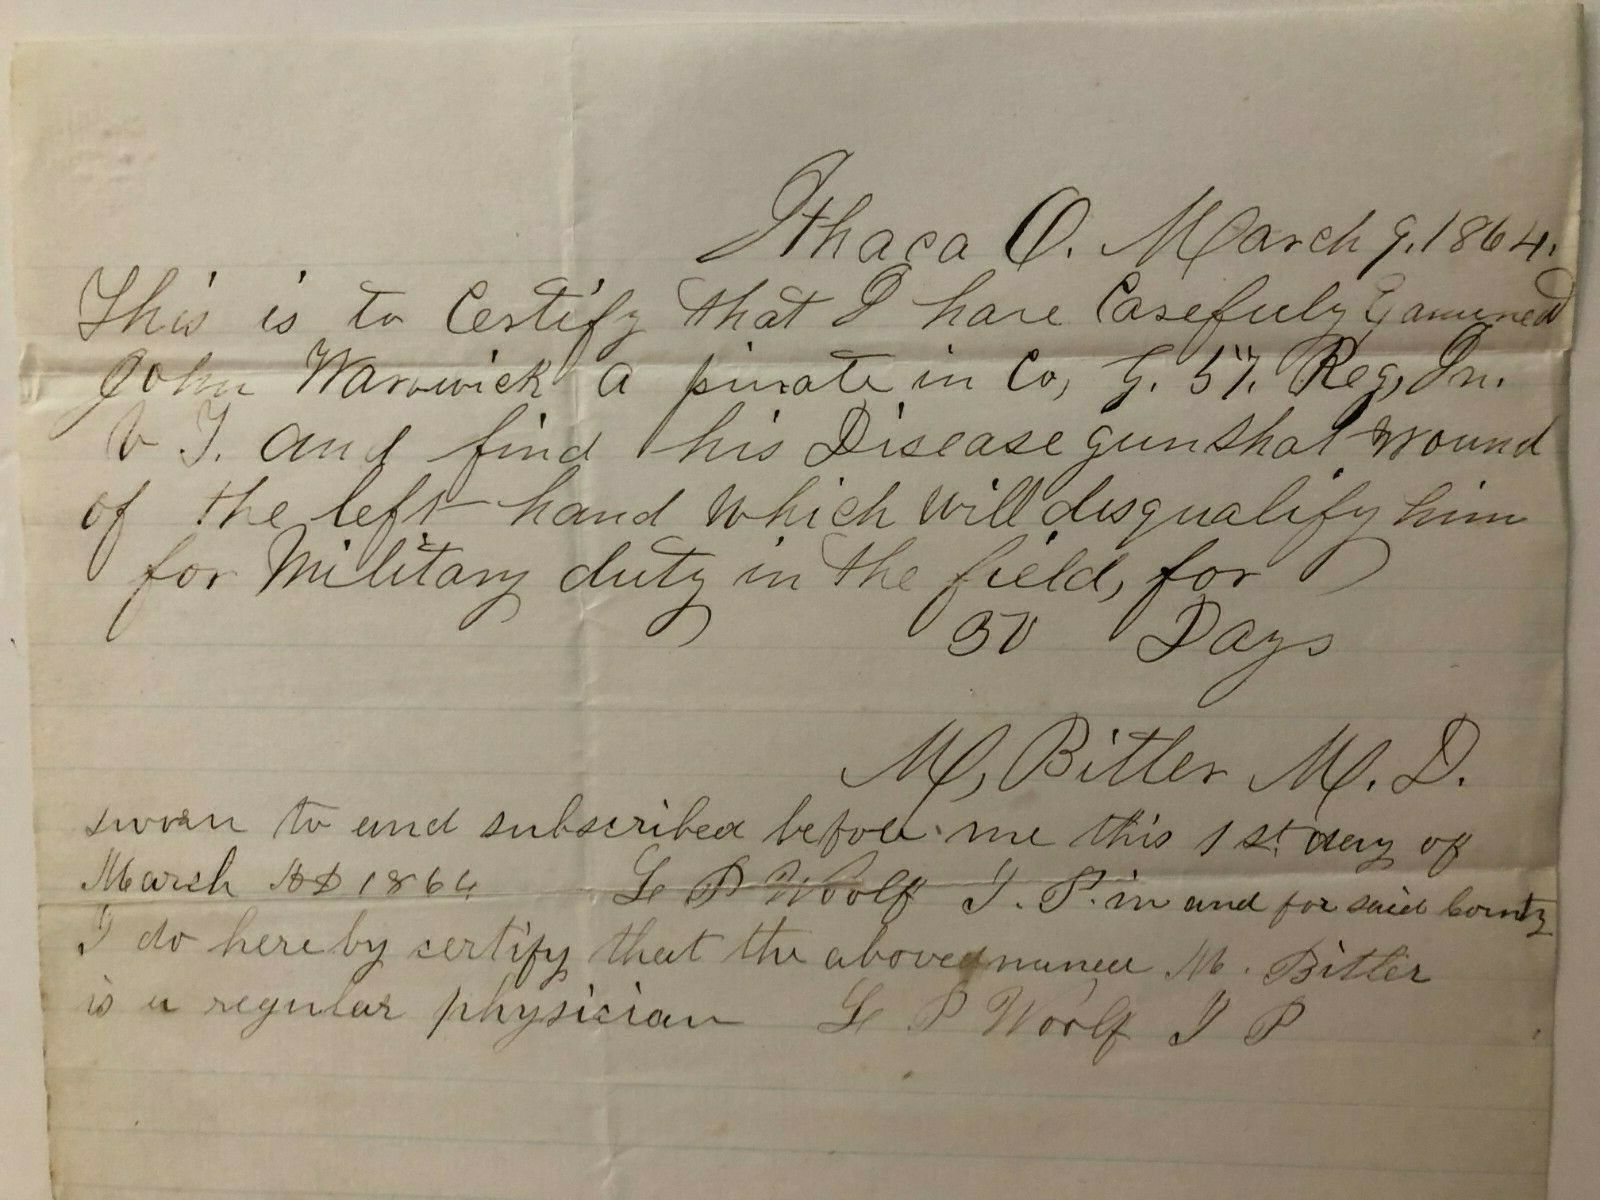 Ithaca O. March 9. 1864.
This is to Certify that I have Carefuly Examined
John Warwick a private in Co, G. 57. Reg, In.
V I. and find his Disease gunshot wound
of the left hand which will disqualify him
for Military duty in the field, for
30 Days
M, Bitler M. D.
sworn to and subscribed before me this 1 st. day of
March AD 1864 L P Woolf J. P. in and for said County
I do hereby certify that the above named M. Bitler
is a regular physician L P Woolf J P